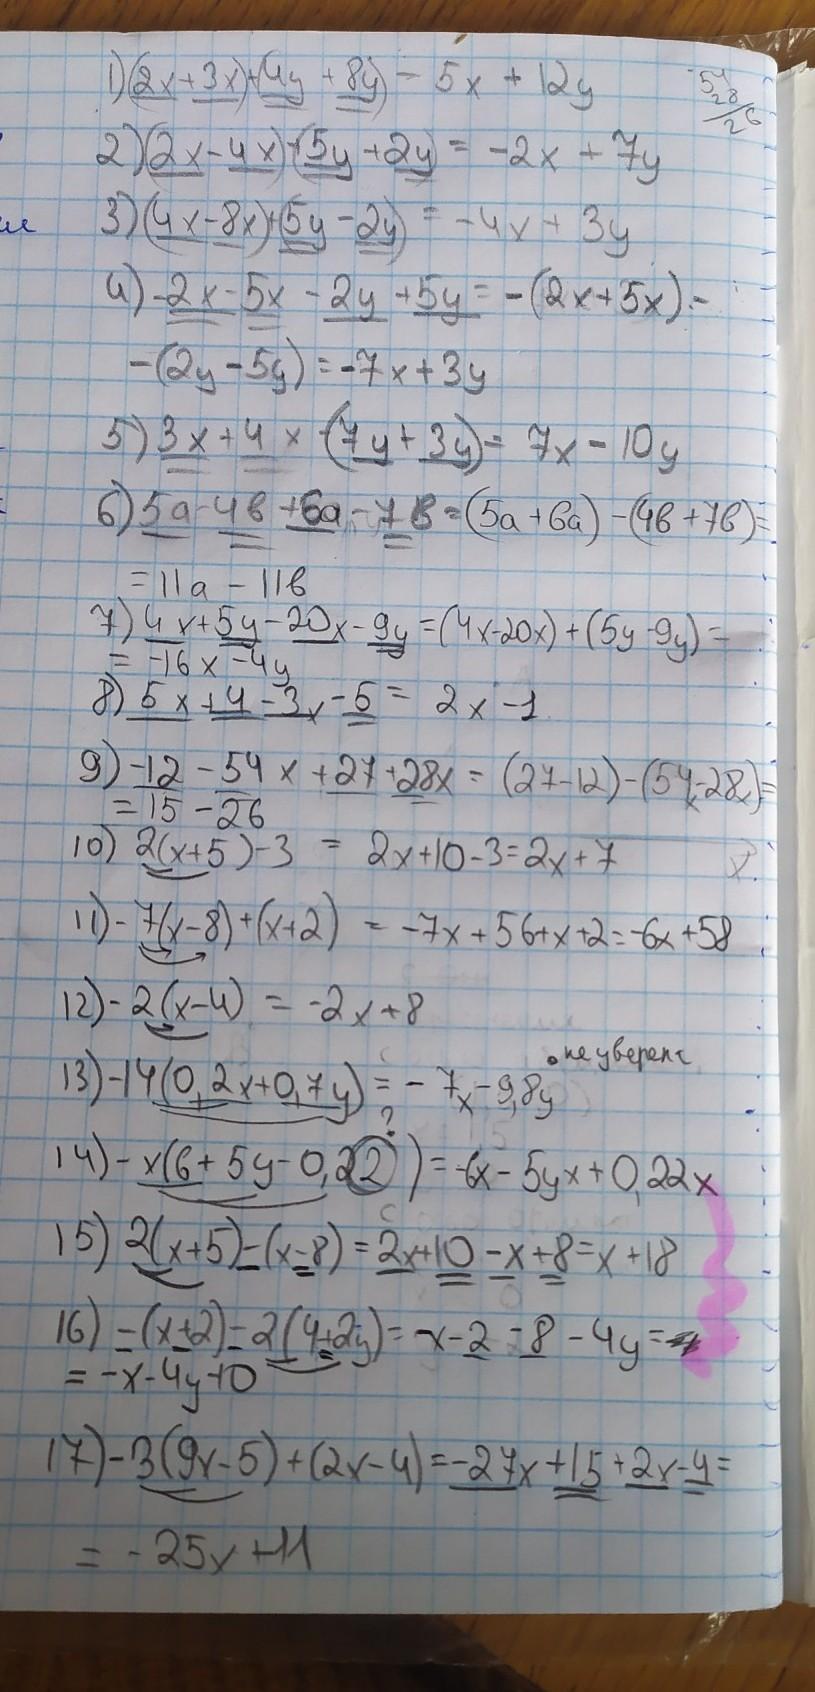 1)(2x+3x)+(4y+8y) - 5x + 12y
54
28
26
2)(2x-4x)+(5y+2y) = -2x + 7y
3)(4x-8x)+(5y-2y) = -4x + 3y
4)-2x-5x-2y+5y=-(2x+5x)-
-(2y-5y)=-7x+3y
5)3x+4x-(7y+3y)= 7x-10y
6)5a-4в+6a-7в=(5a+6a)-(4в+7в)=
=11a-11в
7)4x+5y-20x-9y=(4x-20x)+(5y-9y)=
=-16x-4y
8)5x+4-3x-5= 2x-1
9)-12-54x+27+28x=(27-12)-(54x-28x)=
=15-26
10) 2(x+5)-3 = 2x+10-3=2x+7
11)-7(x-8)+(x+2) = -7x+56+x+2=-6x+58
12)-2(x-4) = -2x+8
не уверена
13)-14(0,2x+0,7y)=-7x-9,8y
?
14)-x(6+5y-0,22)=-6x-5yx+0,22x
15) 2(x+5)-(x-8)=2x+10-x+8=x+18
16) -(x+2)-2(4+2y)=-x-2-8-4y=
=-x-4y-10
17)-3(9x-5)+(2x-4)=-27x+15+2x-4=
=-25x+11